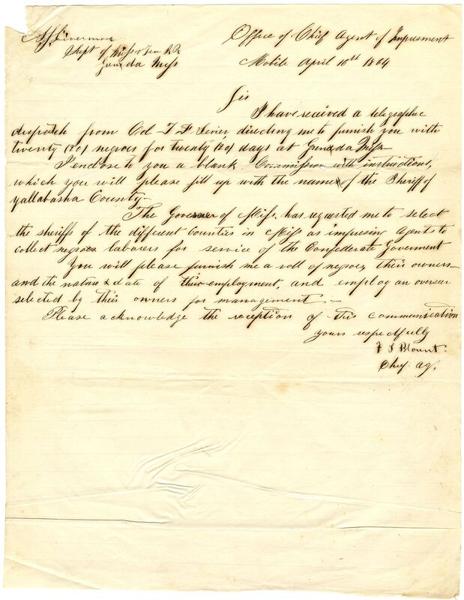 A J Livermore
Supt of Miss & Ten R R
Grenada Miss
Office of Chief Agent of Impressment
Mobile April 10th 1864
Sir
I have received a telegraphic
dispatch from Col T F Sevier directing me to furnish you with
twenty (20) negroes for twenty (20) days at Grenada Miss
I enclose to you a blank Commission with instructions,
which you will please fill up with the name of the Sheriff of
Yallabusha County
The Governor of Miss, has requested me to select
the sheriffs of the different Counties in Miss as impressing Agents to
collect negroes laborers for service of the Confederate Goverment
You will please furnish me a roll of negroes their owners
and the nature & date of their employment, and employ an overseer
selected by their owners for management.
Please acknowledge the reception of this communication
yours respectfully
F S Blount
Chf ag.